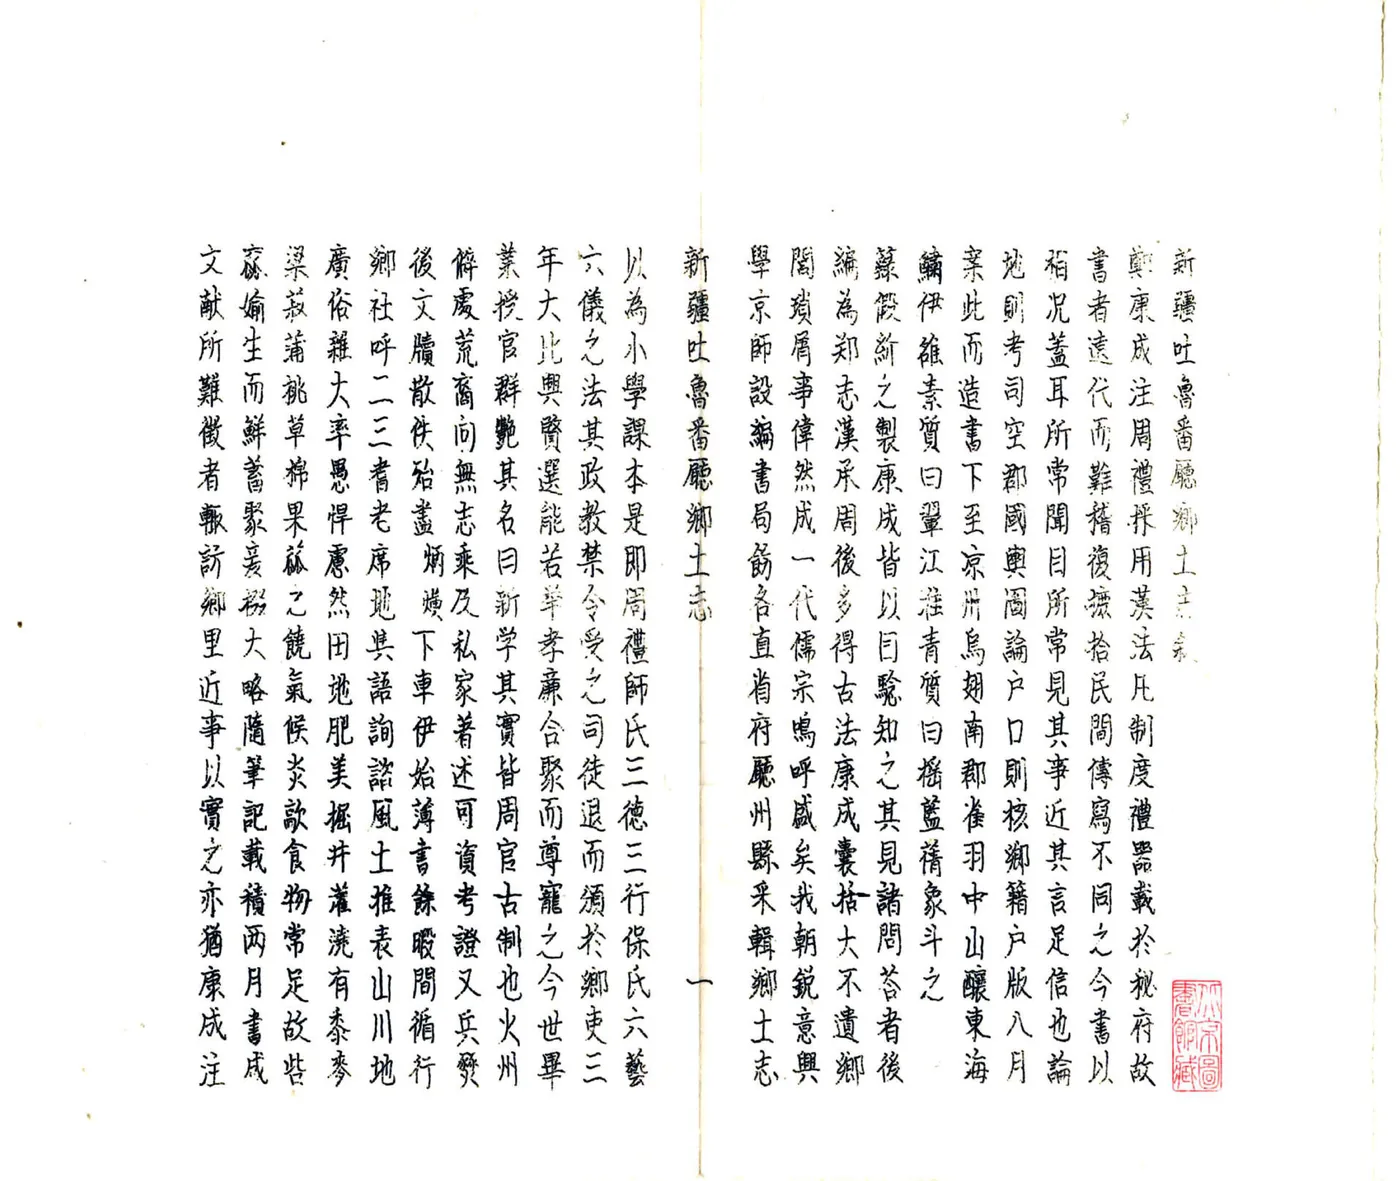 新疆吐魯番廳鄉土志叙
鄭康成注周禮採用漢法凡制度禮器載於秘府故
書者遠代而難稽復攘拾民間傳寫不同之今書以
相况蓋耳所常聞目所常見其事近其言足信也論
地則考司空郡國輿圖論户口則核鄉籍户版八月
案此而造書下至凉州烏翅南郡雀羽中山釀東海
鱐伊雒素質曰翬江淮青質曰摇藍蒨象斗之
蓩假紒之製康成皆以目驗知之其見諸問荅者後
編為郑志漢承周後多得古法康成囊括大不遺鄉
閭瑣屑事偉然成一代儒宗嗚呼盛矣我朝鋭意興
學京師設編書局飭各直省府廳州縣采輯鄉土志
新疆吐魯番廳鄉土志 一
以為小學課本是即周禮師氏三德三行保氏六藝
六儀之法其政教禁令受之司徒退而頒於鄉吏三
年大比興賢選能若舉孝廉合聚而尊寵之今世畢
業授官群艷其名曰新学其實皆周官古制也火州
僻處荒裔向無志乘及私家著述可資考證又兵燹
後文牘散佚殆盡 炳爌下車伊始薄書餘暇間循行
鄉社呼二三耆老席地與語詢諮風土推表山川地
廣俗雜大率愚悍慮然田地肥美掘井灌澆有黍麥
粱菽蒲桃草棉果蓏之饒氣候炎歊食物常足故呰
窳媮生而鮮蓄聚爰掇大略隨筆記載積两月書成
文献所難徵者輙訪鄉里近事以實之亦猶康成注
北京圖
書館藏